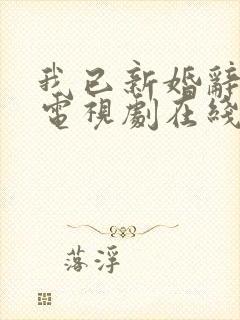 我已新婚辭
電視劇在綫
落浮